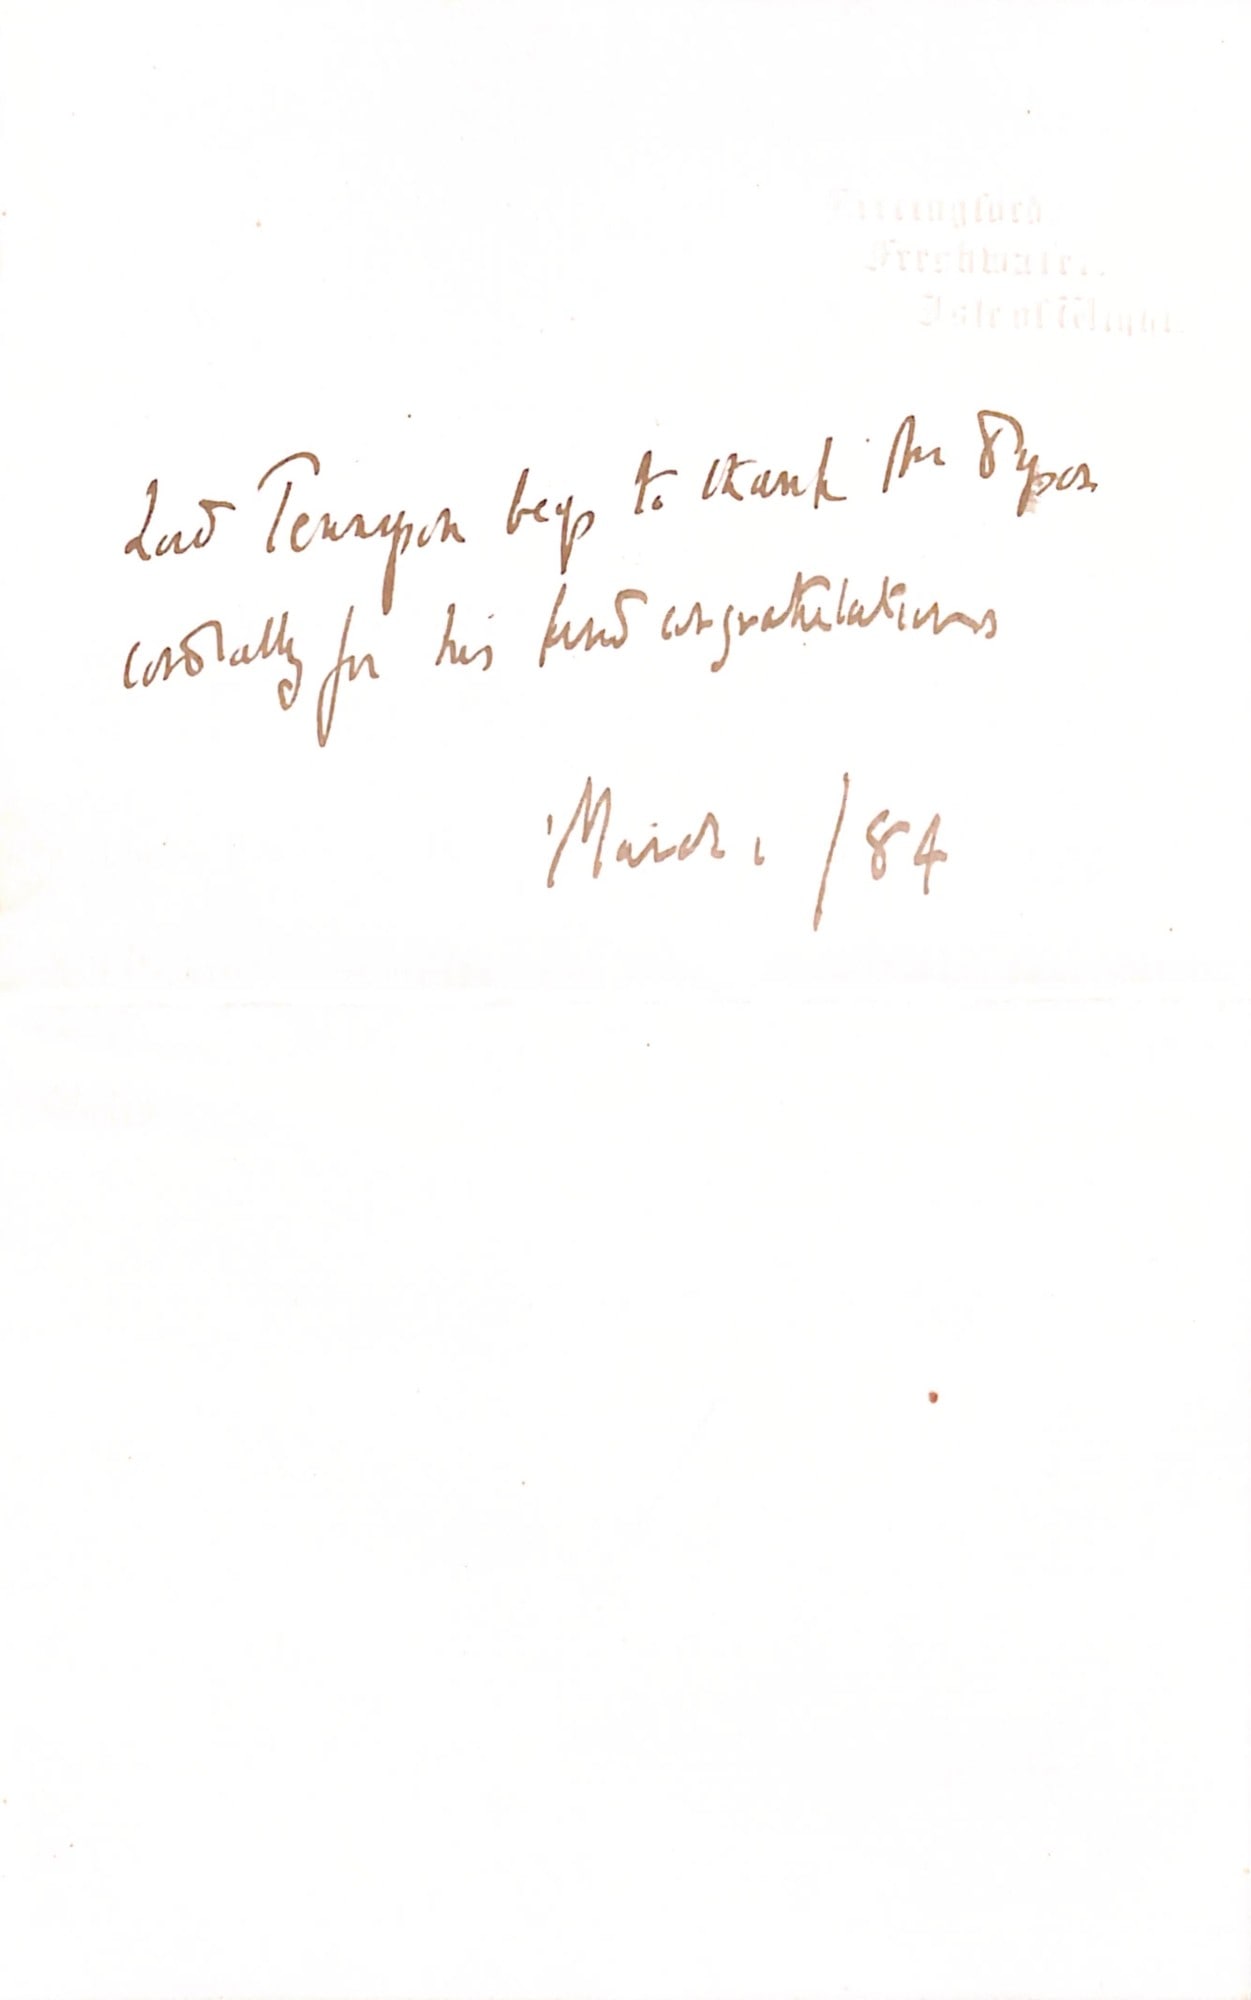 Farringford.
Freshwater.
Isle of Wight.
Lord Tennyson begs to thank Mr Dyson
cordially for his kind congratulations
March 1 /84